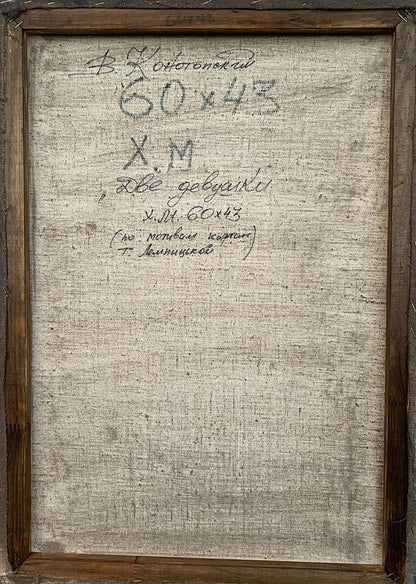 В. Конотопский
60х43
Х.М
Две девушки
х.м. 60х43
(по мотивам картин
Т. Лемпицкой)